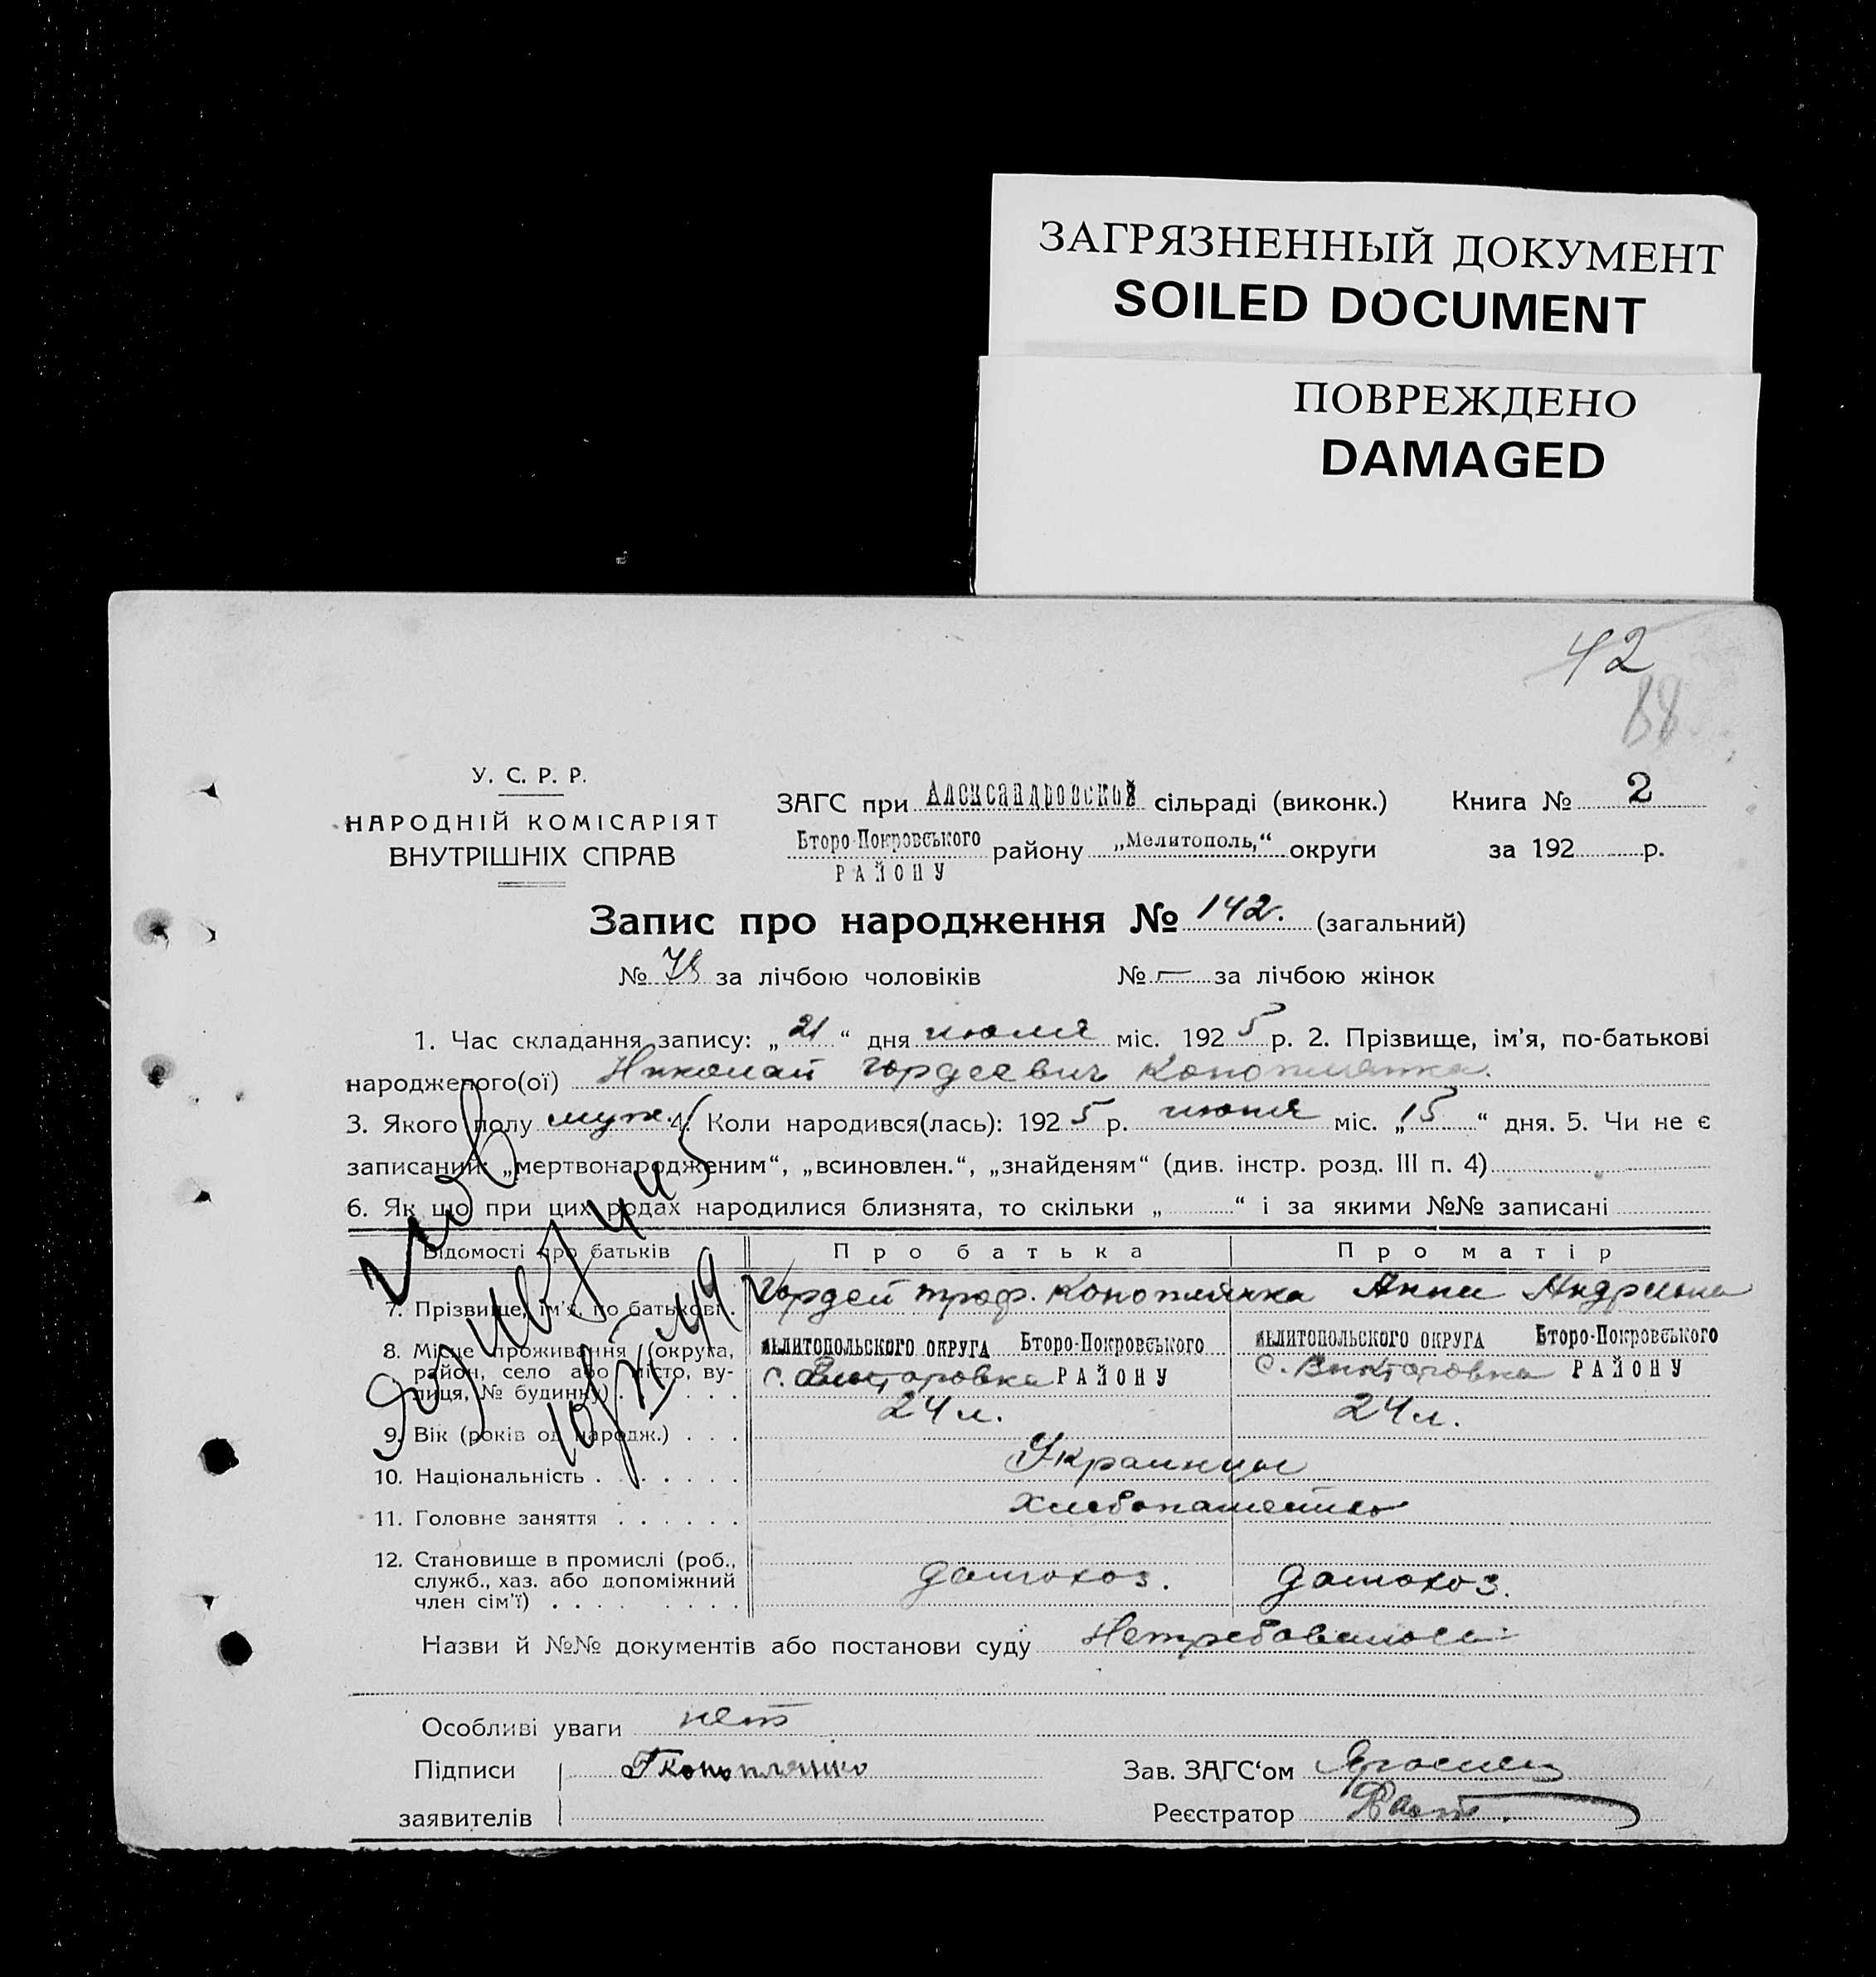 ЗАГРЯЗНЕННЫЙ ДОКУМЕНТ
SOILED DOCUMENT
ПОВРЕЖДЕНО
DAMAGED
42
88
У. С. Р. Р.
НАРОДНІЙ КОМІСАРІЯТ
ВНУТРІШНІХ СПРАВ
ЗАГС при Александровской сільраді (виконк.)
Второ-Покровського району „Мелитополь,“ округи
РАЙОНУ
Книга № 2
за 192 р.
Запис про народження № 142. (загальний)
№ 78 за лічбою чоловіків № — за лічбою жінок
1. Час складання запису: „21“ дня июля міс. 1925 р. 2. Прізвище, ім'я, по-батькові
народженого(ої) Николай Гордеевич Коноплянка.
3. Якого полу муж. 4. Коли народився(лась): 1925 р. июня міс. „15“ дня. 5. Чи не є
записаний: „мертвонародженим“, „всиновлен.“, „знайденям“ (див. інстр. розд. III п. 4)
6. Як що при цих родах народилися близнята, то скільки „ “ і за якими №№ записані
Відомості про батьків Про батька Про матір
7. Прізвище, ім'я, по батькові. Гордей Троф. Коноплянка Анна Андреевна
8. Місце проживання (округа, район, село або місто, вулиця, № будинку) МЕЛИТОПОЛЬСКОГО ОКРУГА Второ-Покровського МЕЛИТОПОЛЬСКОГО ОКРУГА Второ-Покровського
с. Викторовка РАЙОНУ с. Викторовка РАЙОНУ
9. Вік (років од народж.) . . . 24 л. 24 л.
10. Національність . . . . . . . Украинцы
11. Головне заняття . . . . . . Хлебопашество
12. Становище в промислі (роб.,
служб., хаз. або допоміжний
член сім'ї) . . . . . . . . домохоз. домохоз.
Назви й №№ документів або постанови суду Нетребовалось
Особливі уваги нет
Підписи Г Коноплянко Зав. ЗАГС'ом
заявителів Реєстратор